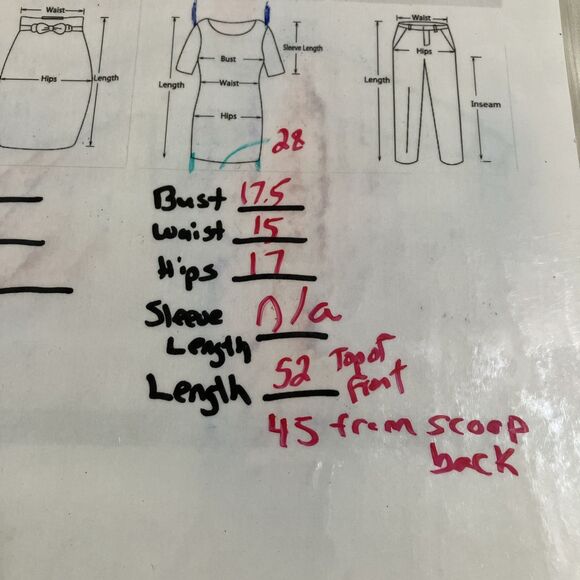 Waist
Hips
Length
Length
Bust
Waist
Hips
Sleeve Length
Waist
Hips
Length
Inseam
28
Bust 17.5
Waist 15
Hips 17
Sleeve Length n/a
Length 52 Top of Front
45 from scoop
back